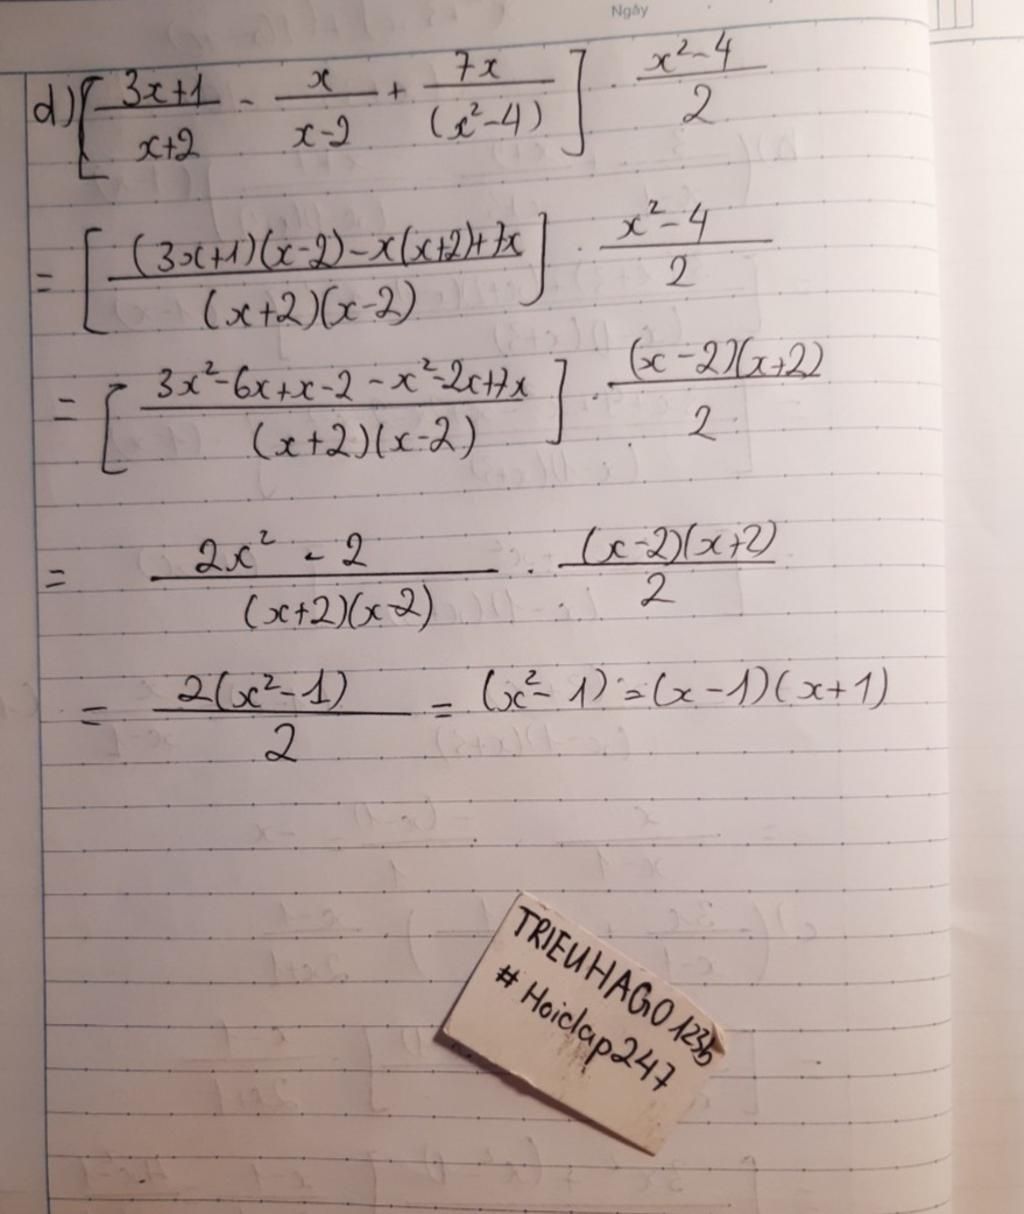 Ngày
d) [ (3x+1)/(x+2) - x/(x-2) + 7x/(x²-4) ] . (x²-4)/2
= [ ((3x+1)(x-2)-x(x+2)+7x)/((x+2)(x-2)) ] . (x²-4)/2
= [ (3x²-6x+x-2-x²-2x+7x)/((x+2)(x-2)) ] . ((x-2)(x+2))/2
= (2x² - 2)/((x+2)(x-2)) . ((x-2)(x+2))/2
= 2(x²-1)/2 = (x²-1) = (x-1)(x+1)
TRIEUHAGO123b
# Hoiclap247